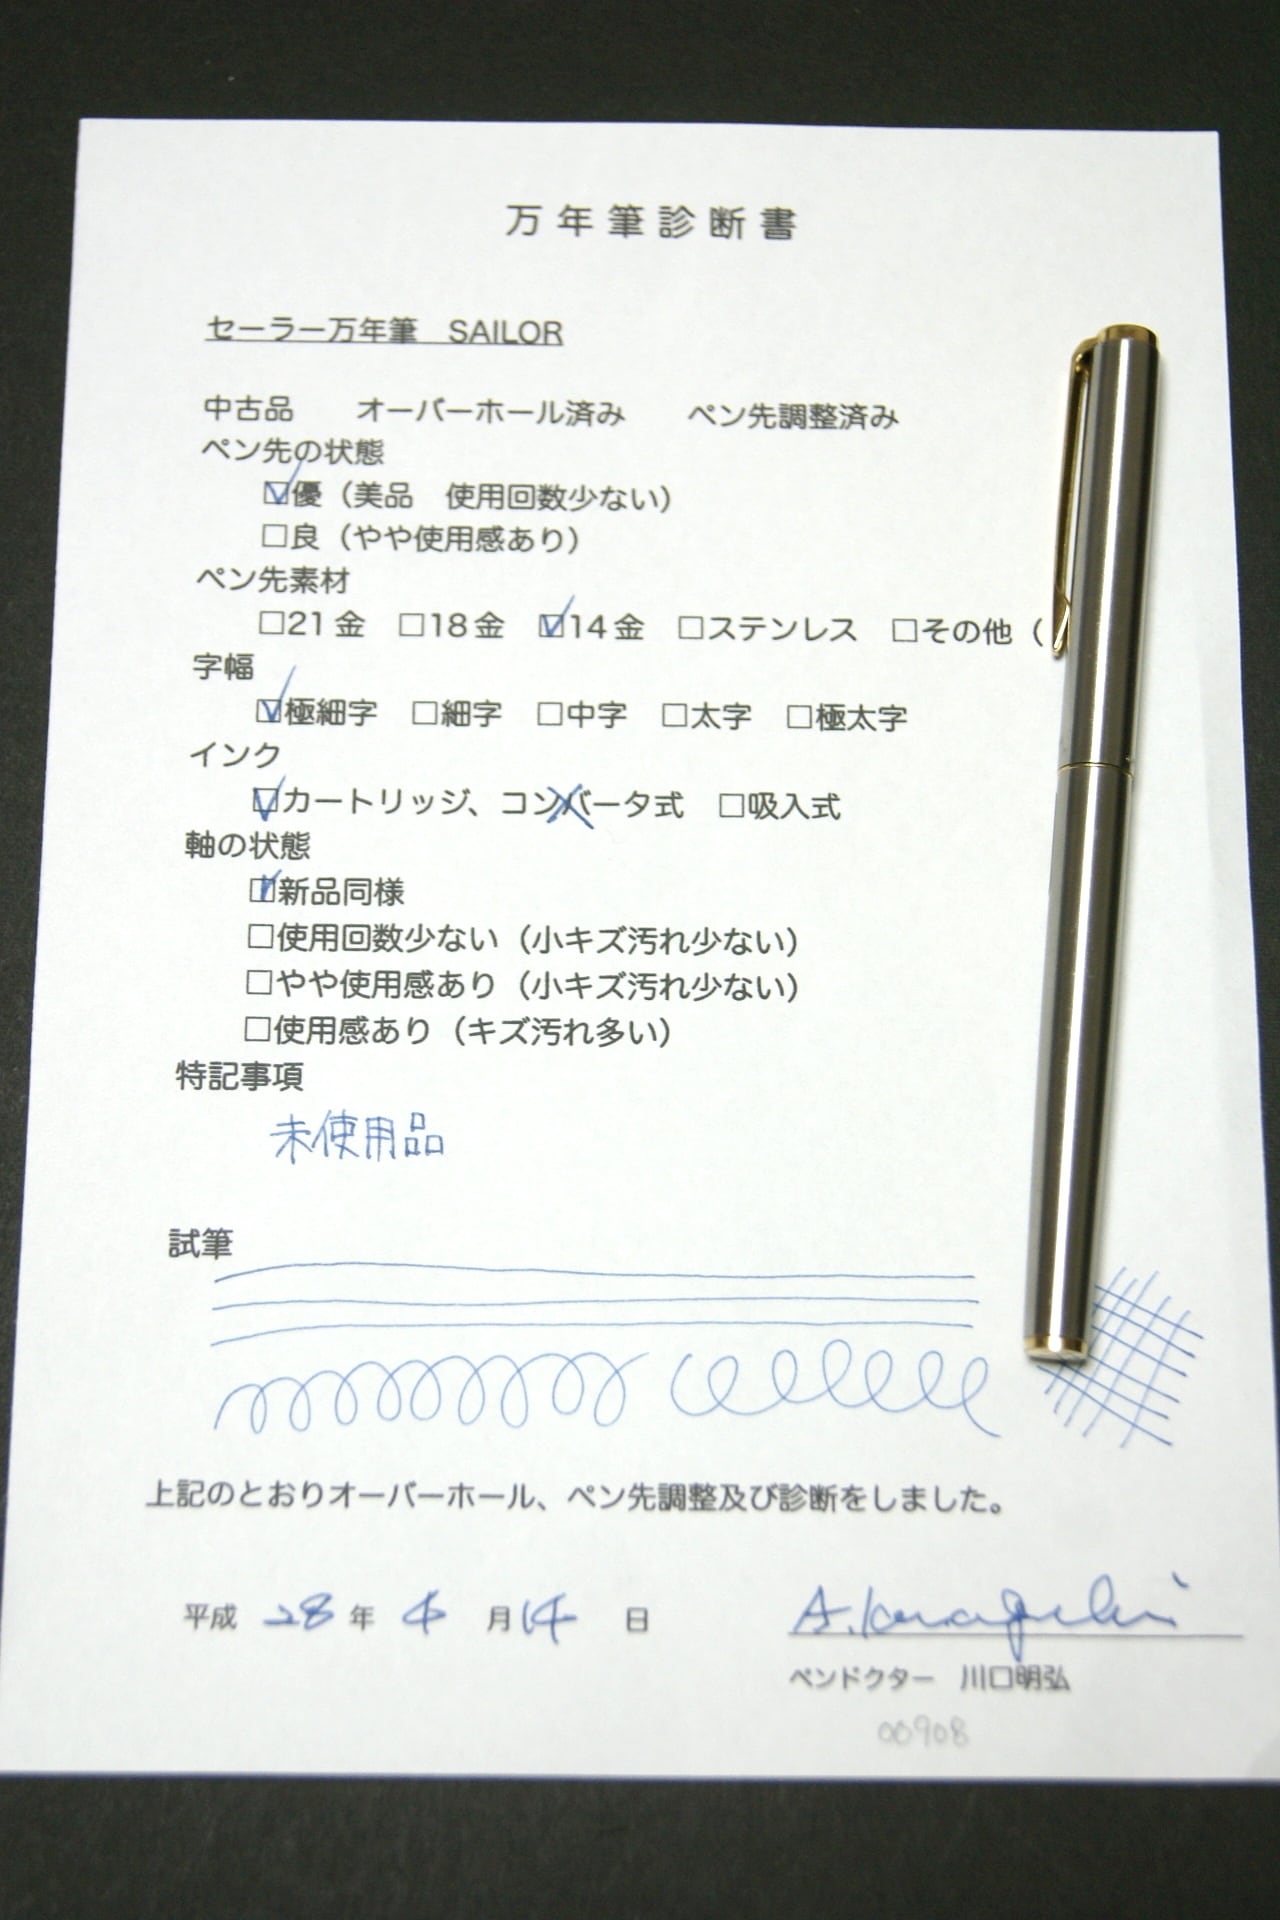 万年筆診断書
セーラー万年筆　SAILOR
中古品　オーバーホール済み　ペン先調整済み
ペン先の状態
☑優（美品　使用回数少ない）
□良（やや使用感あり）
ペン先素材
□21金　□18金　☑14金　□ステンレス　□その他（
字幅
☑極細字　□細字　□中字　□太字　□極太字
インク
☑カートリッジ、コンバータ式　□吸入式
軸の状態
☑新品同様
□使用回数少ない（小キズ汚れ少ない）
□やや使用感あり（小キズ汚れ少ない）
□使用感あり（キズ汚れ多い）
特記事項
未使用品
試筆
上記のとおりオーバーホール、ペン先調整及び診断をしました。
平成 28 年 4 月 14 日　A.Kawaguchi
ペンドクター　川口明弘
00908